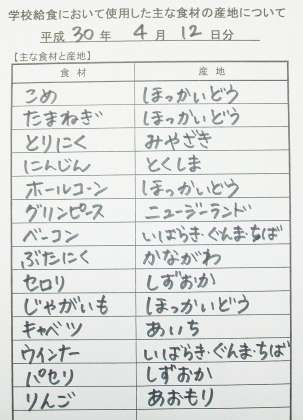 学校給食において使用した主な食材の産地について
平成 30 年 4 月 12 日分
【主な食材と産地】
食材 産地
こめ ほっかいどう
たまねぎ ほっかいどう
とりにく みやざき
にんじん とくしま
ホールコーン ほっかいどう
グリンピース ニュージーランド
ベーコン いばらき・ぐんま・ちば
ぶたにく かながわ
セロリ しずおか
じゃがいも ほっかいどう
キャベツ あいち
ウインナー いばらき・ぐんま・ちば
パセリ しずおか
りんご あおもり